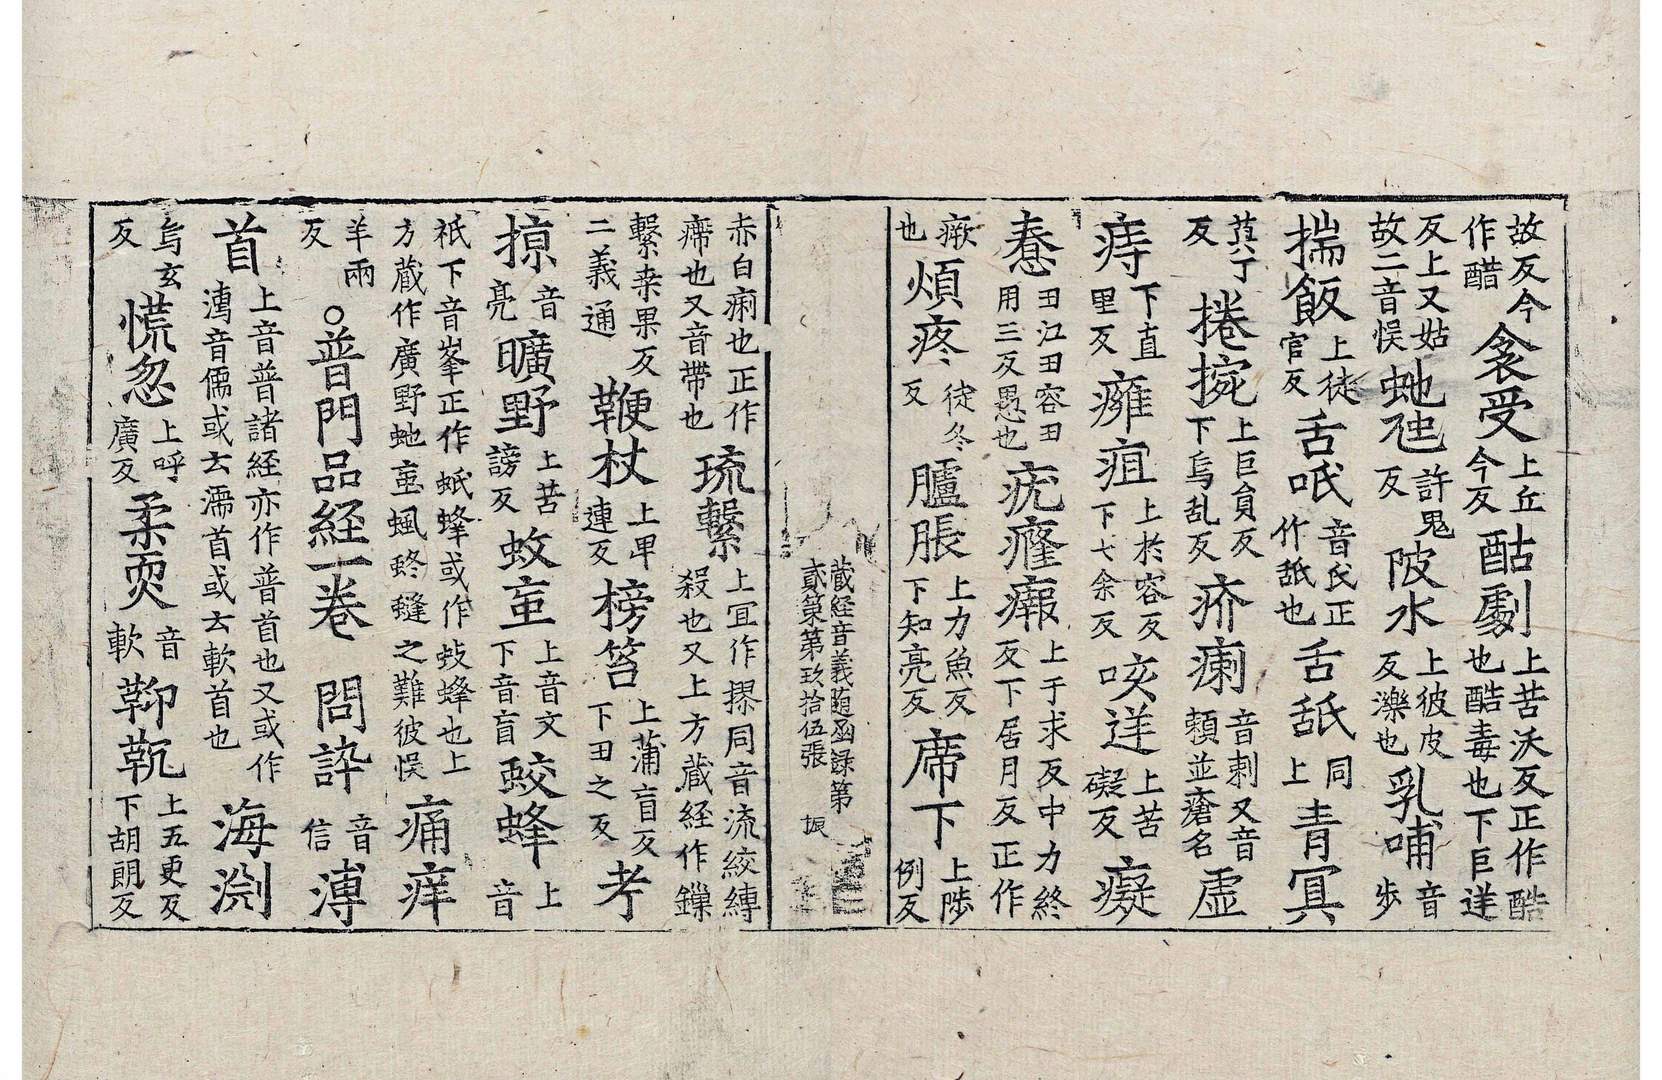 故反今作醋衾受上丘今反酤劇上苦沃反正作酷也酷毒也下巨逆
反上又姑故二音悮虵虺許鬼反陂水上彼皮反濼也乳哺音步
揣飯上徒官反舌呧音氏正作舐也舌舐同上青冥
莫丁反捲捥上巨貟反下烏乱反疥瘌音刺又音頼並瘡名虛
痔下直里反癰疽上於容反下七余反咳逆上苦礙反癡
惷丑江丑容丑用三反愚也疣癃癁上于求反中力終反下居月反正作
瘚也煩疼徒冬反臚脹上力魚反下知亮反席下上陟例反
藏経音義随函録第貳第第玖拾伍張 振
赤白痢也正作㿃也又音帶也琉繫上冝作摎同音流絞縛殺也又上方藏経作鏁
繫桒果反二義通鞭杖上卑連反榜笞上蒲盲反下丑之反考
掠音亮曠野上苦謗反蚊䖟上音文下音盲蛟蜂上音
祇下音峯正作蚔蜂或作蚑蜂也上方藏作廣野虵䖟䗽螤䗬之難彼悮痛痒
羊兩反○普門品経一卷 問誶音信溥
首上音普諸経亦作普首也又或作漙音儒或云濡首或云軟首也海渕
烏玄反慌忽上呼廣反柔耎音軟鞕䩕上五更反下胡朗反